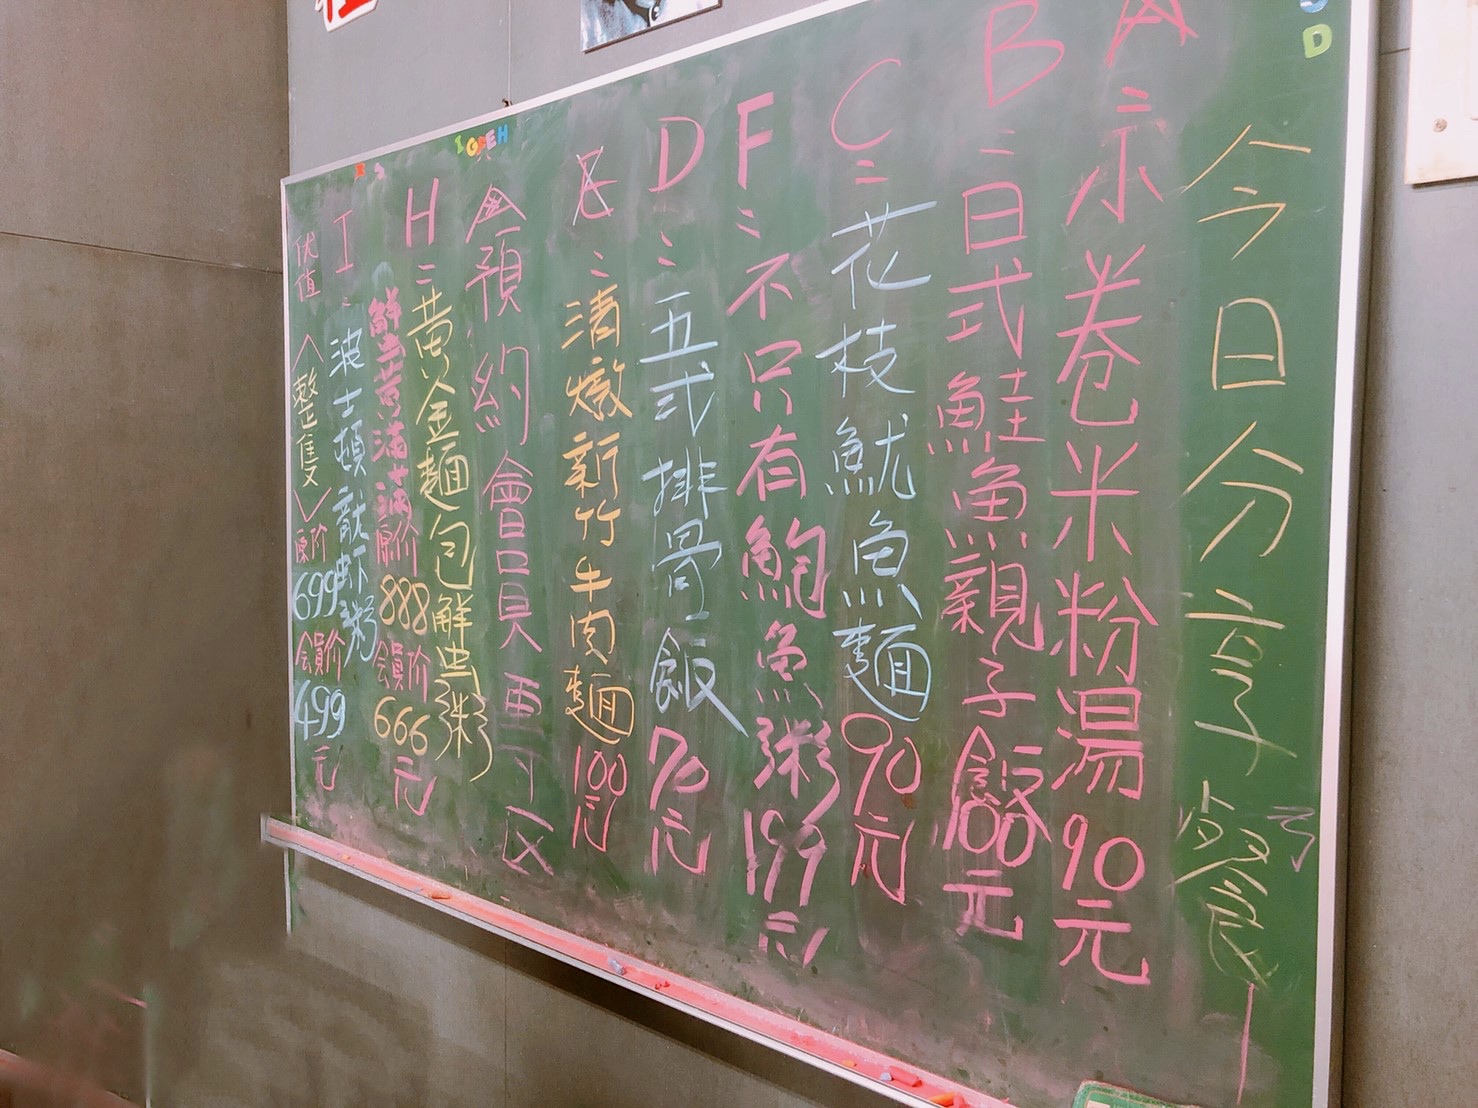 今日分享餐
A：小卷米粉湯90元
B：日式鮭魚親子飯100元
C：花枝魷魚麵90元
F：不只有鮑魚粥199元
D：五式排骨飯70元
E：清燉新竹牛肉麵100元
預約會員專區
H：黃金麵包鮮蚵粥
鮮 滿 原价888 會員价666元
I：波士頓龍虾粥
优值（整隻）原价699 会員价499元
I G F E H
D